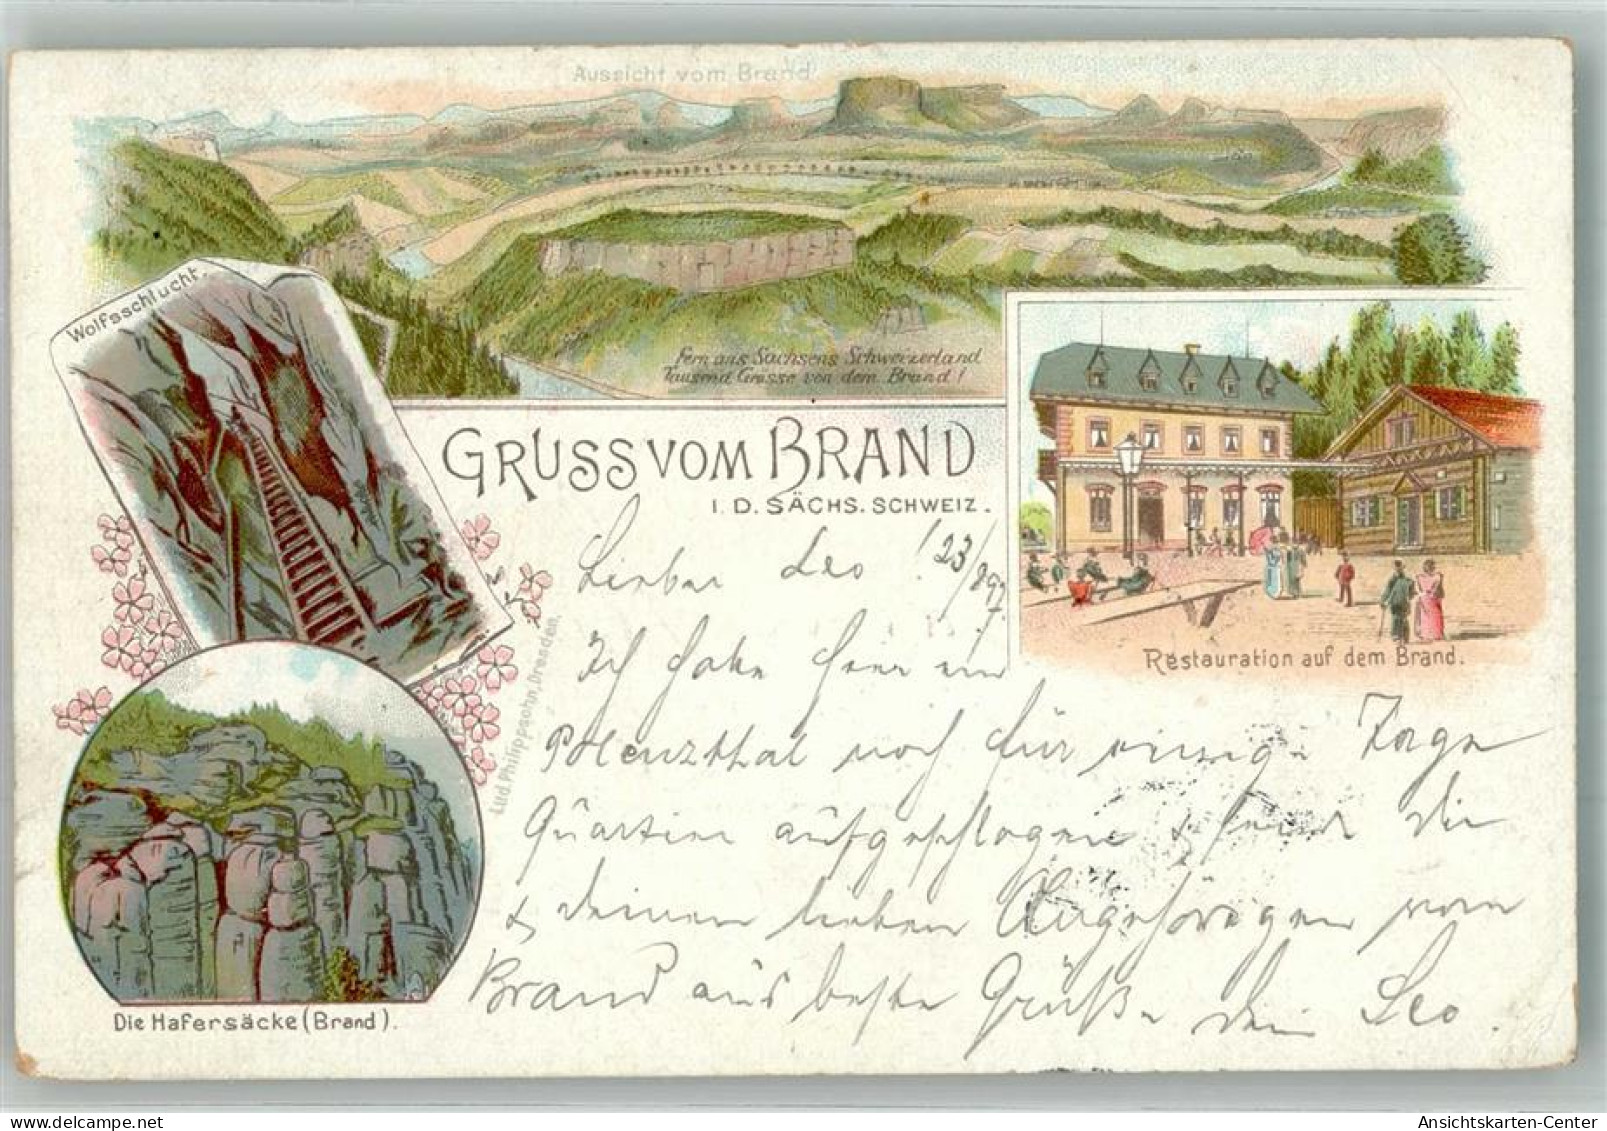 Aussicht vom Brand
Wolfsschlucht.
Fern aus Sachsens Schweizerland
Tausend Grüsse von dem Brand!
GRUSS VOM BRAND
I. D. SÄCHS. SCHWEIZ.
Restauration auf dem Brand.
Die Hafersäcke (Brand).
Lud. Philippsohn, Dresden.
Lieber Leo! 23/8 97.
Ich habe hier im
Polenzthal noch für einige Tage
Quartier aufgeschlagen & sende Dir
& deinen lieben Angehörigen vom
Brand aus beste Grüße Dein Leo.
Ansichtskarten-Center